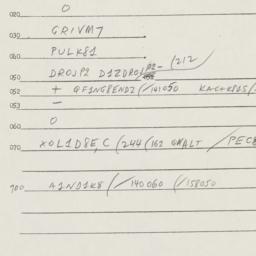 020 O
030 GRIVM7
060 PULK81
050 DROJP2 DIZDROJP2- (212
052 + QFING8END2 (/141050 KACHK8JS(/
053 -
060 O
070 XOLID8E,C (244 (162 OHALT /PEC8
700 AIND1K8 (/140060 (/158050